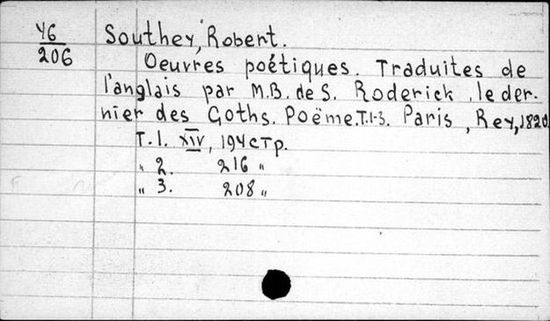 У6
206
Southey, Robert.
Oeuvres poétiques. Traduites de
l'anglais par M.B. de S. Roderick, le der-
nier des Goths. Poëme. T.1-3. Paris, Rey, 1820.
T. 1. XIV, 194 стр.
" 2. 216 "
" 3. 208 "